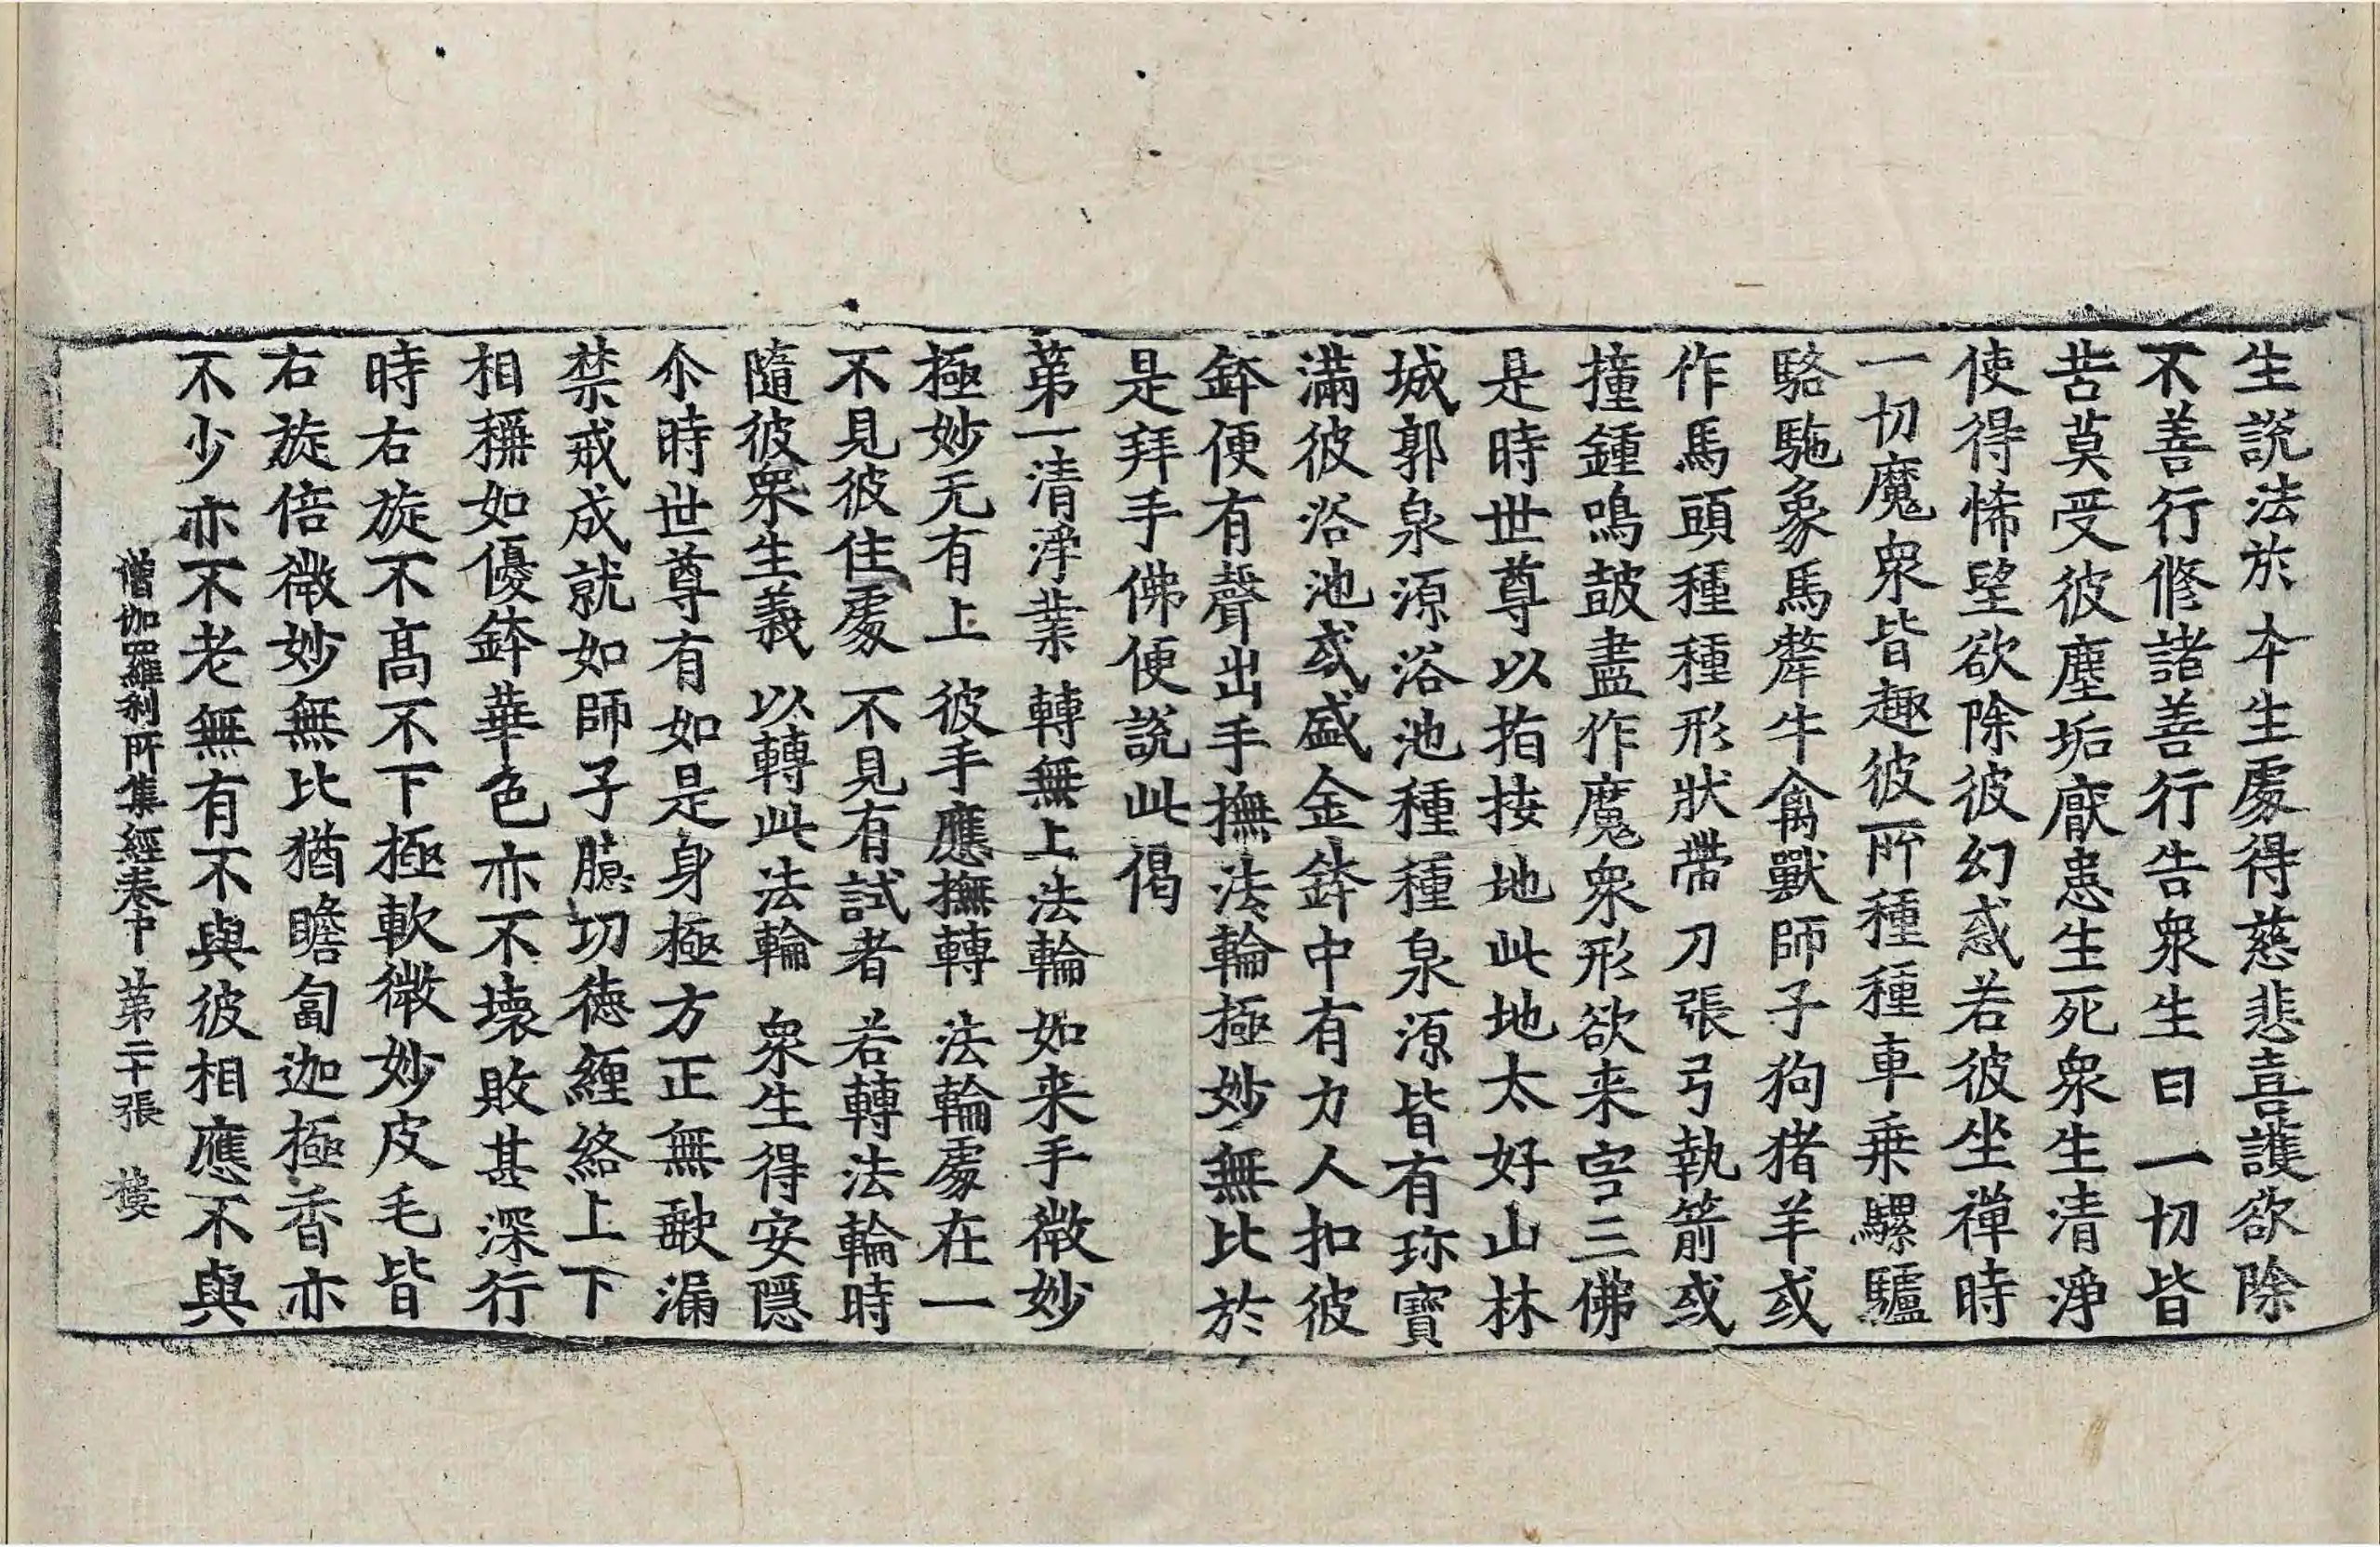 生說法於本生處得慈悲喜護欲除
不善行修諸善行告衆生曰一切皆
苦莫受彼塵垢厭患生死衆生清淨
使得悕望欲除彼幻惑若彼坐禪時
一切魔衆皆趣彼所種種車乗騾驢
駱駞象馬犛牛禽獸師子狗猪羊或
作馬頭種種形狀帶刀張弓執箭或
撞鍾鳴鼓盡作魔衆形欲来害三佛
是時世尊以指按地此地太好山林
城郭泉源浴池種種泉源皆有珎寶
滿彼浴池或盛金鉢中有力人扣彼
鉢便有聲出手撫法輪極妙無比於
是拜手佛便說此偈
第一清淨業　轉無上法輪　如来手微妙
極妙无有上　彼手應撫轉　法輪處在一
不見彼住處　不見有試者　若轉法輪時
隨彼衆生義　以轉此法輪　衆生得安隠
尒時世尊有如是身極方正無缺漏
禁戒成就如師子臆㓛徳纏絡上下
相稱如優鉢華色亦不壞敗甚深行
時右旋不髙不下極軟微妙皮毛皆
右旋倍微妙無比猶瞻匐迦極香亦
不少亦不老無有不與彼相應不與
僧伽羅刹所集經卷中　第二十張　樓